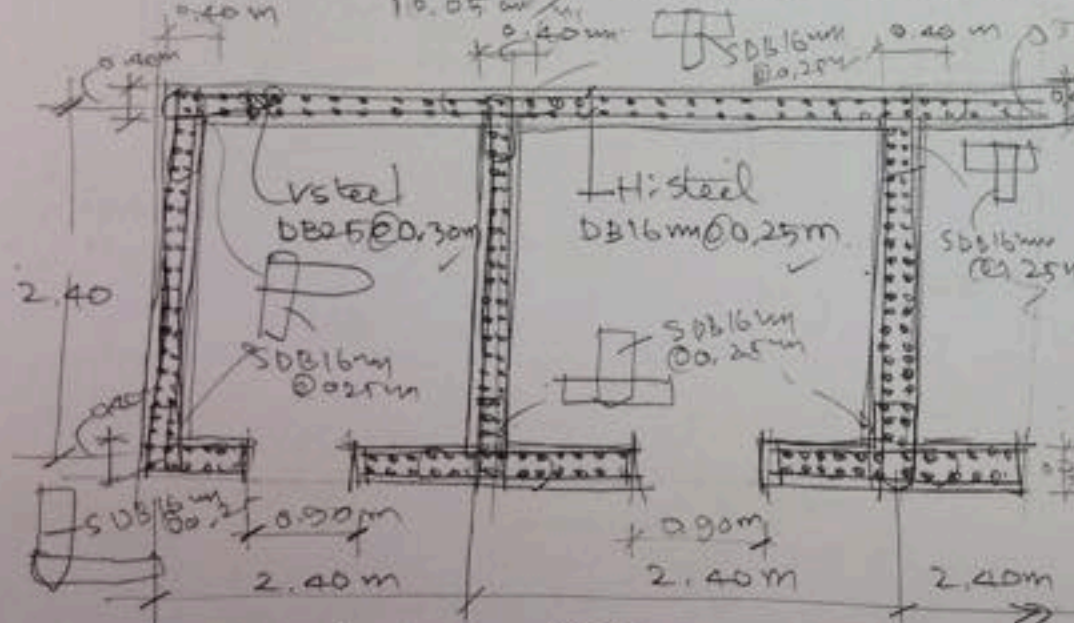 0.40m
10.05 cm²/m
0.40m
SDB16mm
@0.25m
0.40m
0.40m
V.steel
DB25@0.30m
H.steel
DB16mm@0.25m
SDB16mm
2.40
SDB16mm
@0.25m
SDB16mm
@0.25m
0.40
SDB16mm
0.90m
0.90m
2.40m
2.40m
2.40m